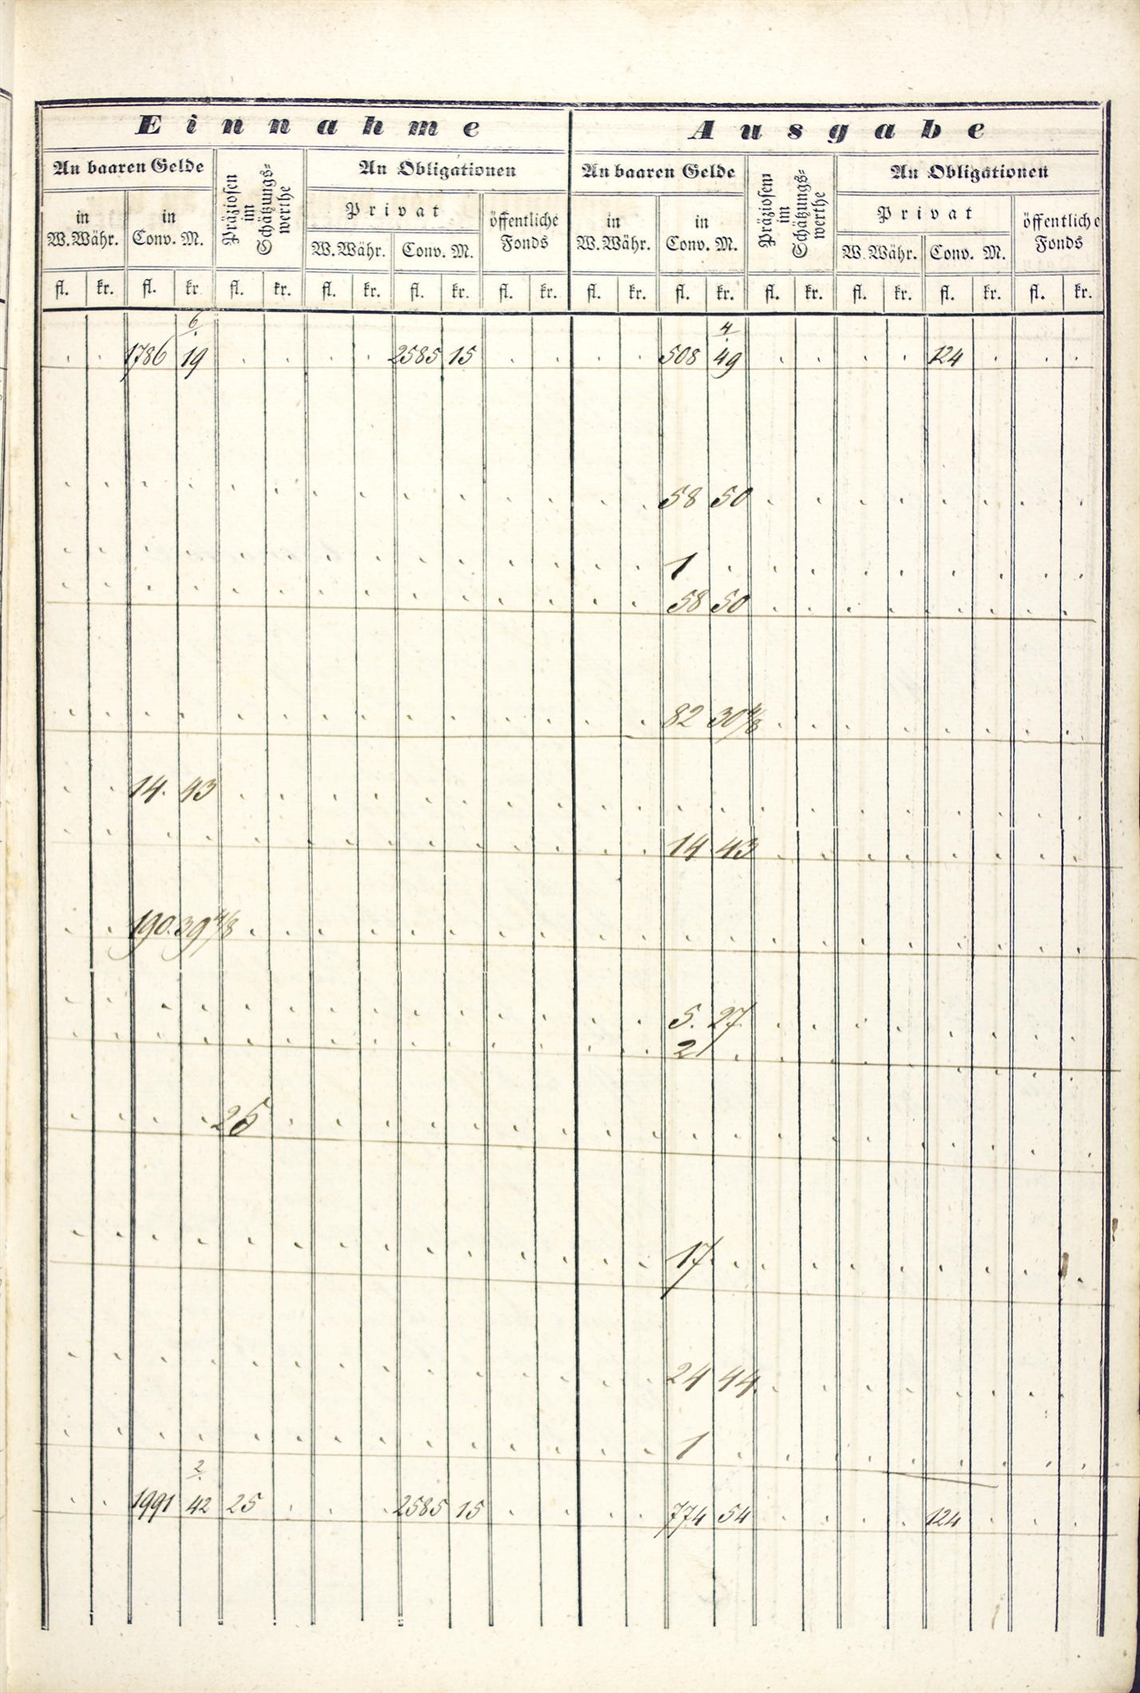 Einnahme Ausgabe
An baaren Gelde An Obligationen An baaren Gelde An Obligationen
Präziosen im Schätzungs=werthe Präziosen im Schätzungs=werthe
Privat Privat
in W.Währ. in Conv. M. öffentliche Fonds in W.Währ. in Conv. M. öffentliche Fonds
W.Währ. Conv. M. W.Währ. Conv. M.
fl. kr. fl. kr fl. kr. fl. kr. fl. kr. fl. kr. fl. kr. fl. kr. fl. kr. fl. kr. fl. kr. fl. kr.
6 4
1786 19 2585 15 508 49 124
58 50
1
58 50
82 30 4/8
14. 43
14 43
190. 39 4/8
5. 27
2
25
17
24 44
1
2
1991 42 25 2585 15 774 54 124